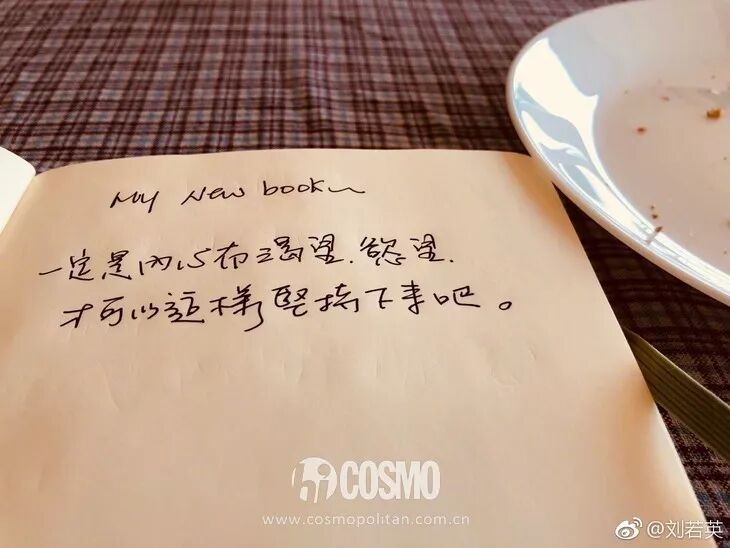 My New book
一定是內心有渴望.慾望.
才可以這樣堅持下來吧。
COSMO
www.cosmopolitan.com.cn
@刘若英